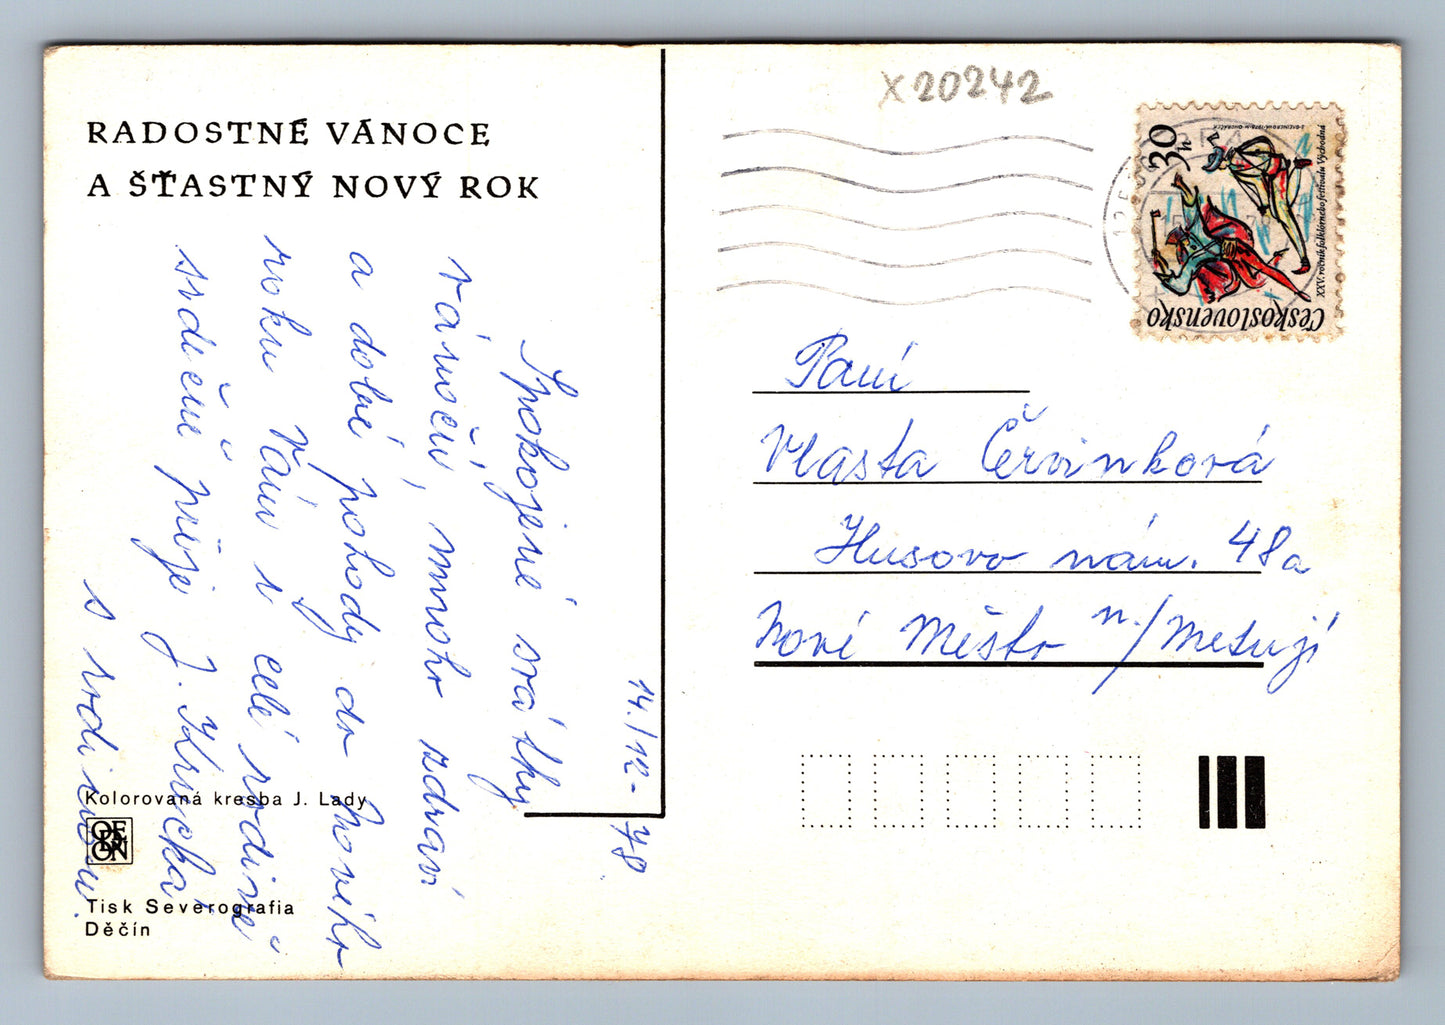 RADOSTNÉ VÁNOCE
A ŠŤASTNÝ NOVÝ ROK
14./12-78.
Spokojené svátky
vánoční, mnoho zdraví
a dobré pohody do Nového
roku Vám i celé rodině
srdečně přeje J. Hrnčká
s rodinou.
Kolorovaná kresba J. Lady
ODEON
Tisk Severografia
Děčín
X20242
30h
XXV. ročník folklórneho festivalu Východná
Československo
Paní
Vlasta Červinková
Husovo nám. 48a
Nové Město n./Metují